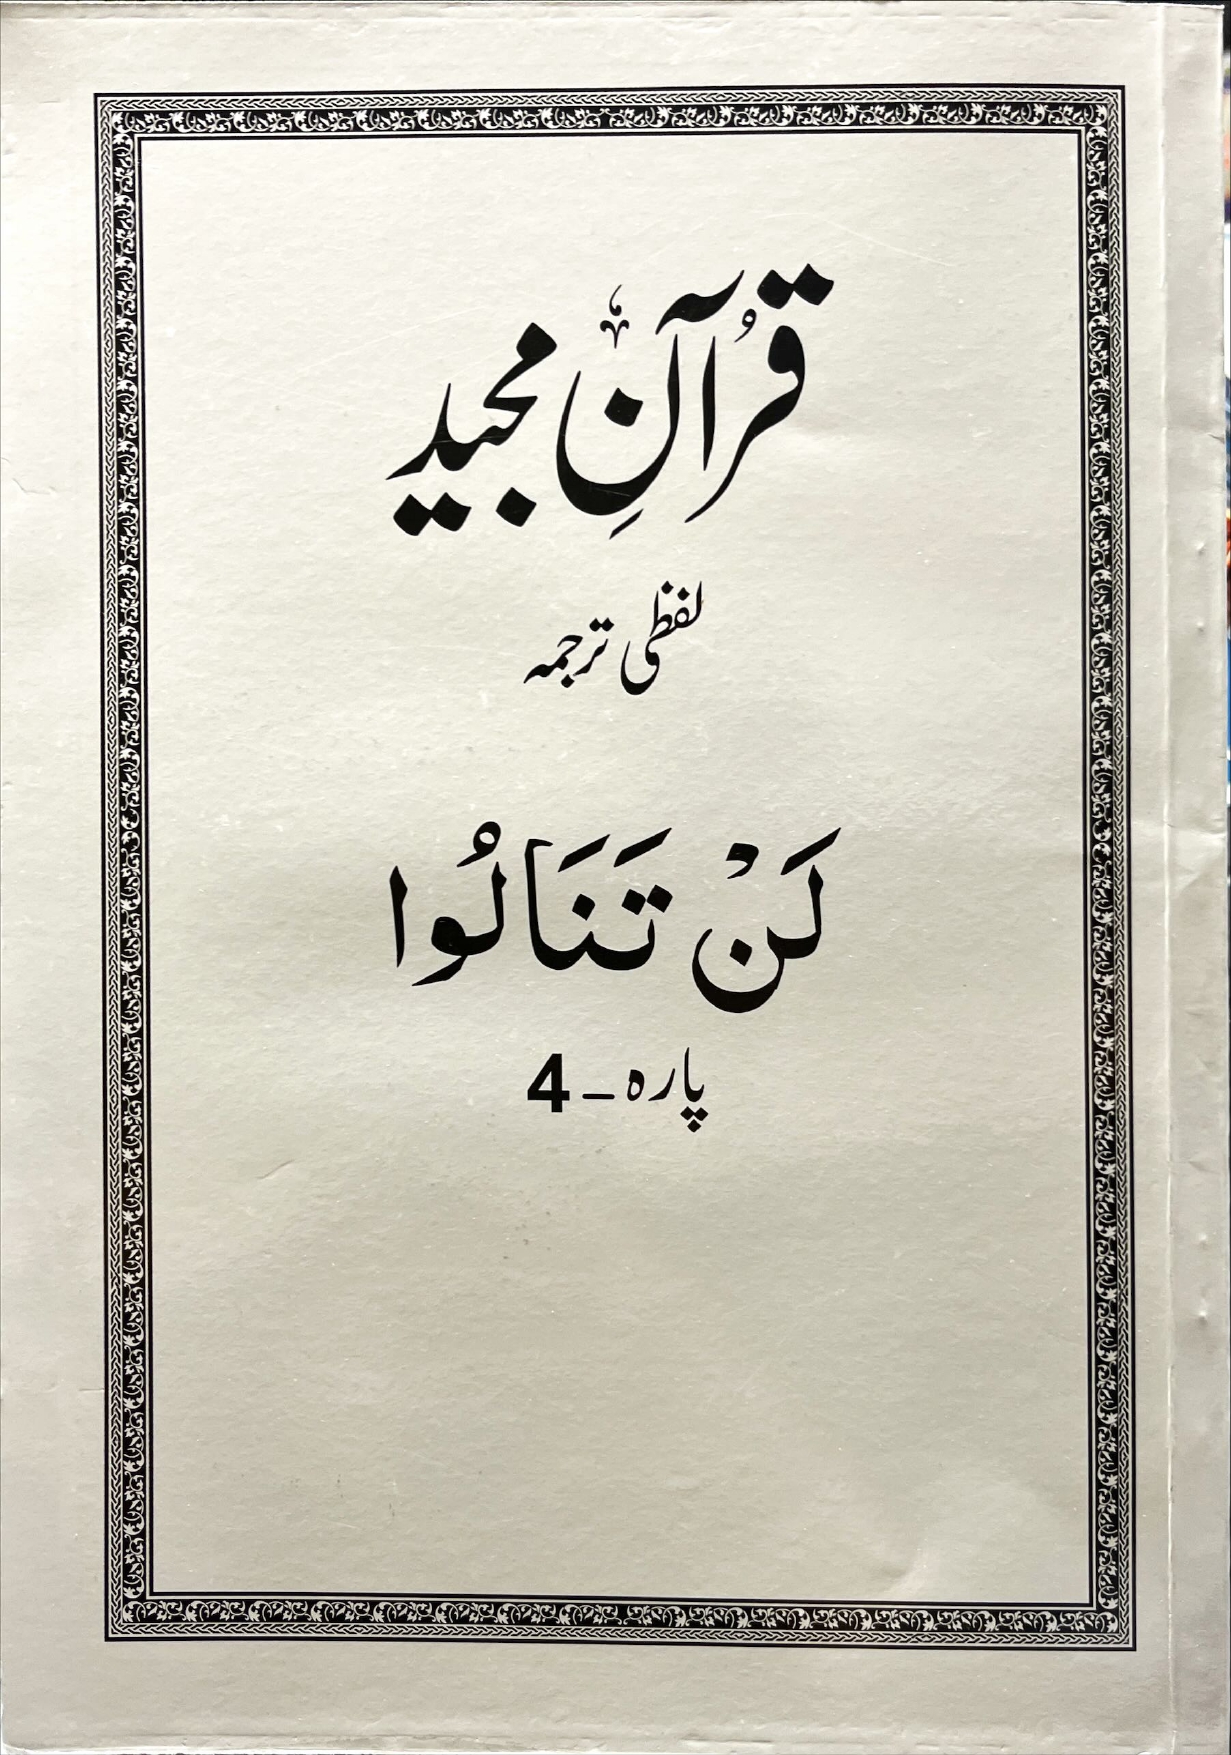 قُرآنِ مجید
لفظی ترجمہ
لَنْ تَنَالُوا
پارہ - 4